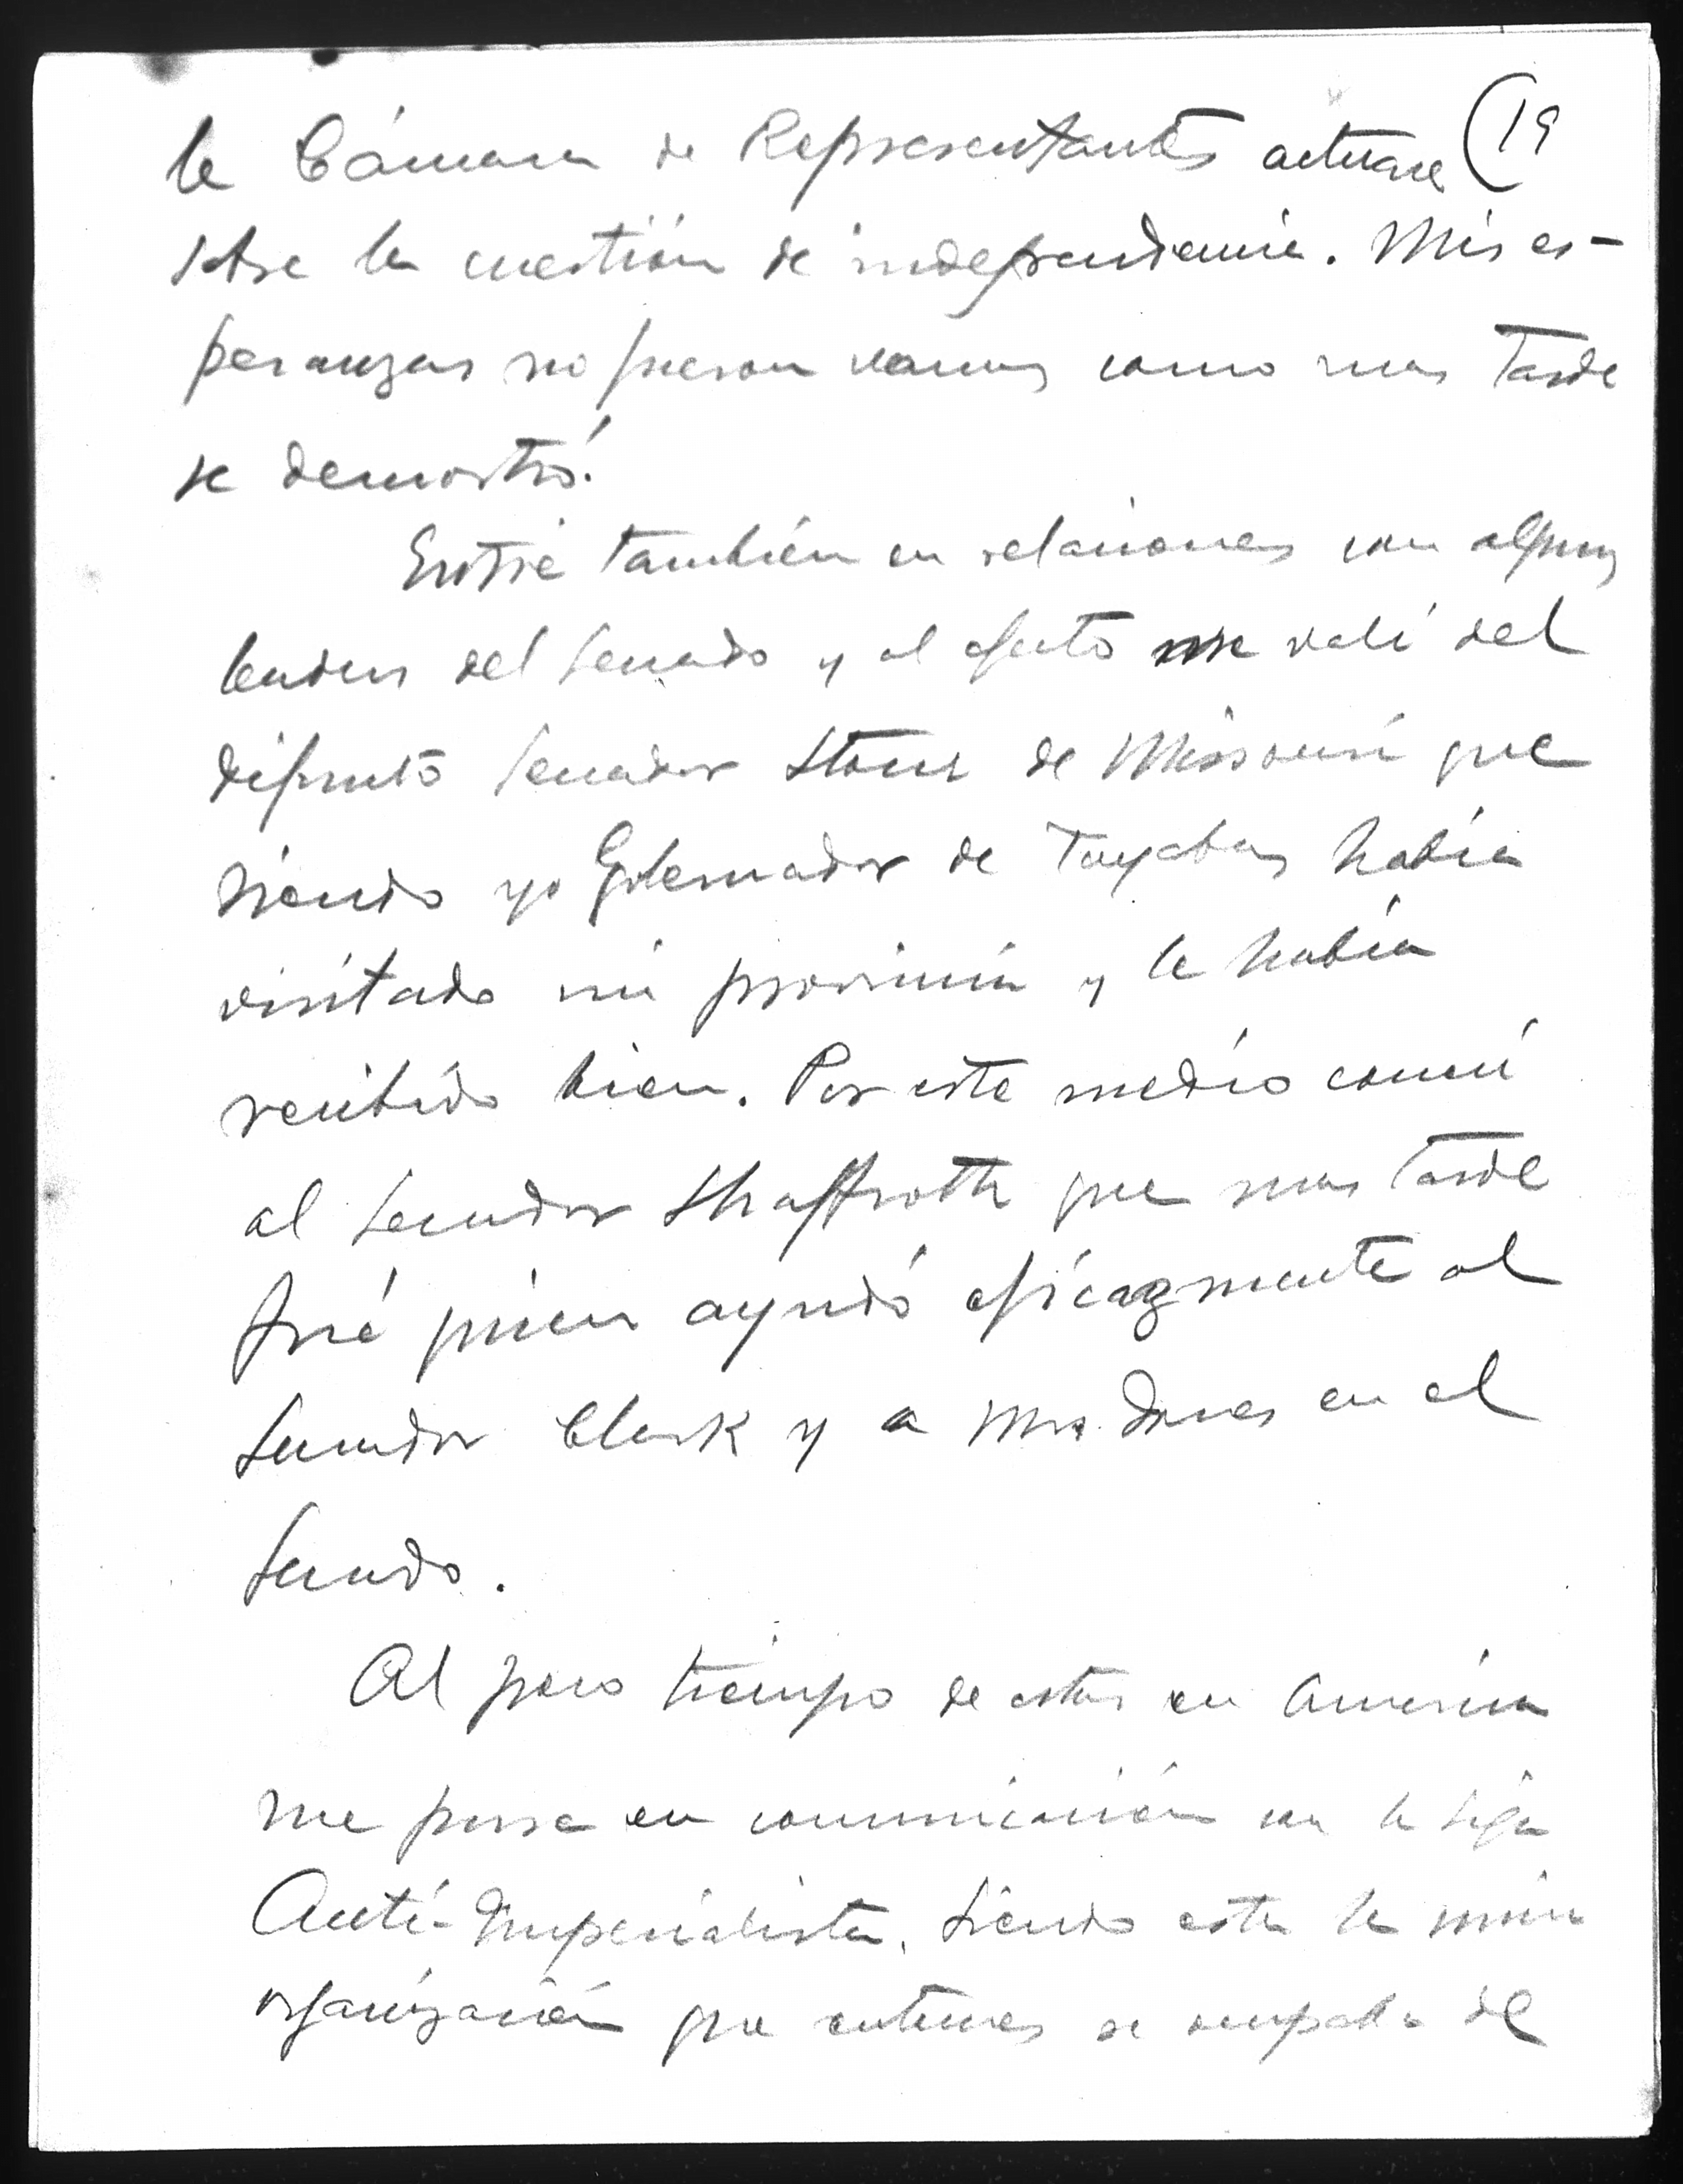 (19
la Cámara de Representantes actuase
sobre la cuestión de independencia. Mis es-
peranzas no fueron vanas como mas tarde
se demostró.
Entré también en relaciones con algunos
leaders del Senado y al efecto me valí del
difunto Senador Stone de Missouri que
siendo yo Gobernador de Tayabas había
visitado mi provincia y le había
recibido bien. Por este medio conocí
al Senador Shaffroth que mas tarde
fué quien ayudó eficazmente al
Senador Clark y a Mr. Jones en el
Senado.
Al poco tiempo de estar en America
me puse en comunicación con la Liga
Anti-Imperialista, siendo esta la única
organización que entonces se ocupaba del